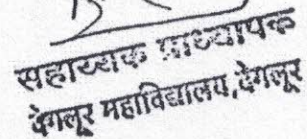 सहाय्यक प्राध्यापक
देगलूर महाविद्यालय, देगलूर